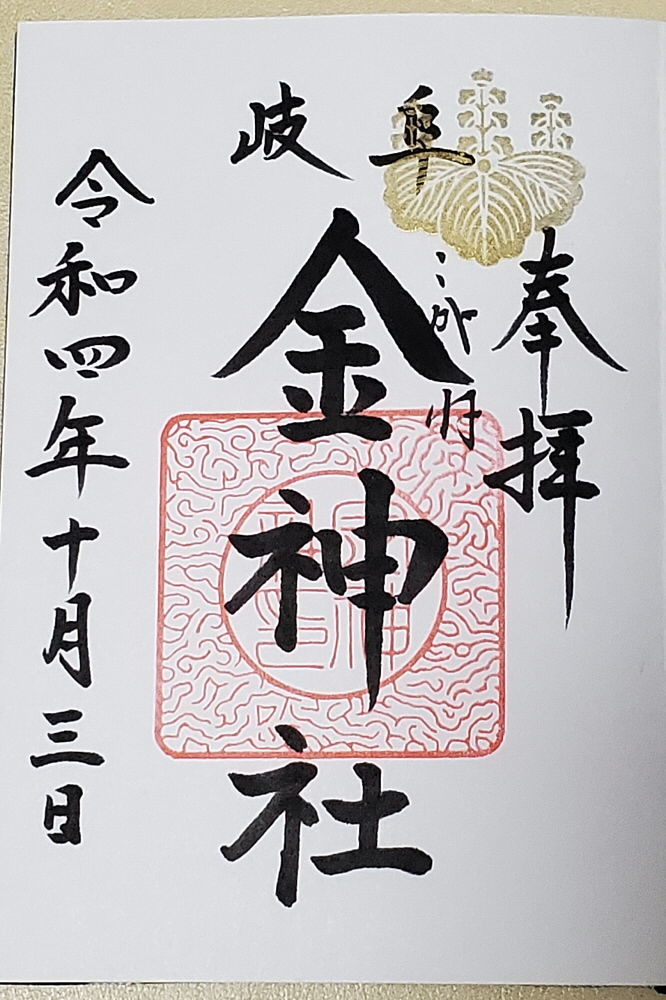 奉拝
岐阜
金神社
令和四年十月三日